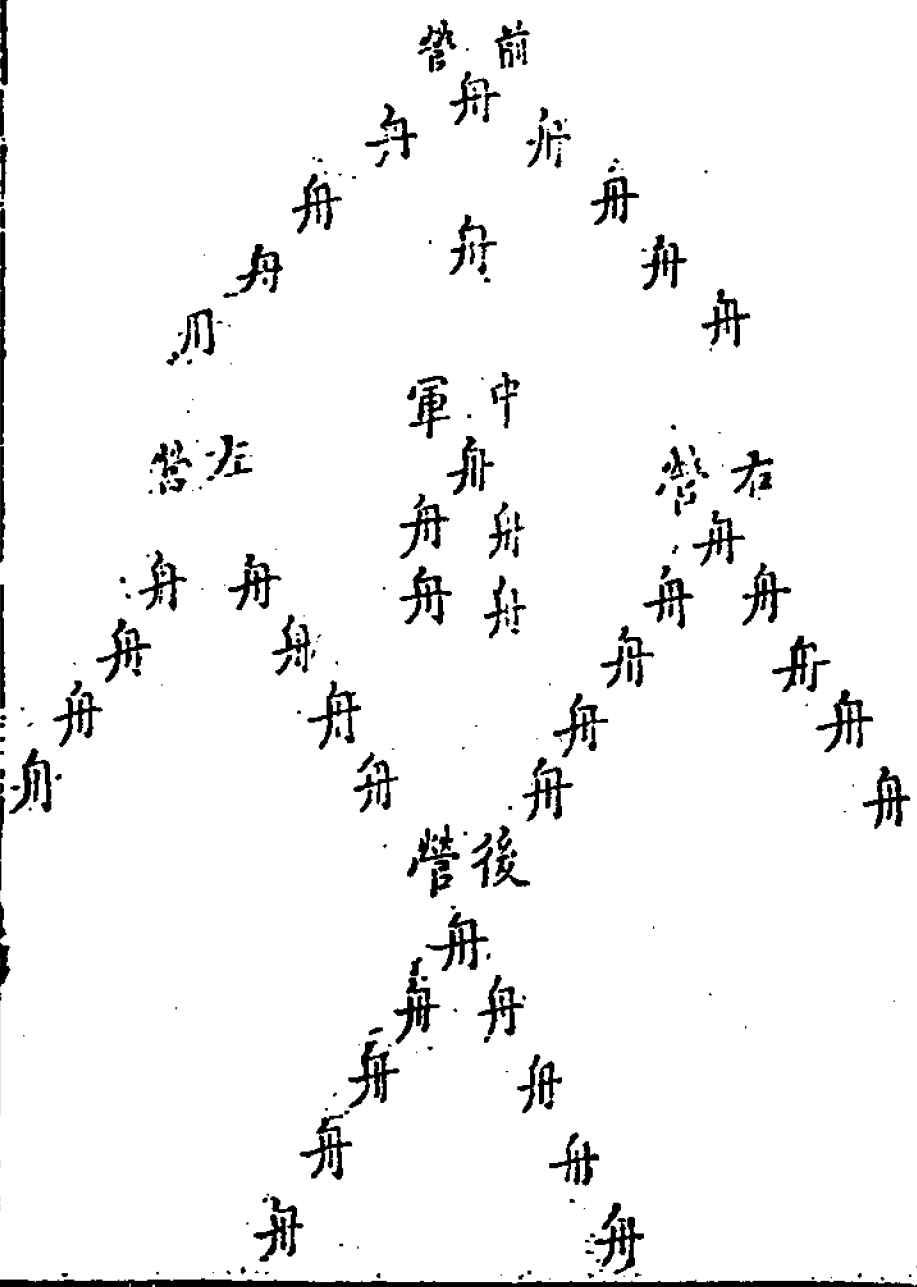 前營
舟
舟舟
舟舟
舟
舟舟
舟舟
中軍
舟
舟舟
舟舟
右營
舟
舟舟
舟舟
舟舟
舟舟
左營
舟舟
舟舟
舟舟
舟舟
後營
舟
舟舟
舟舟
舟舟
舟舟